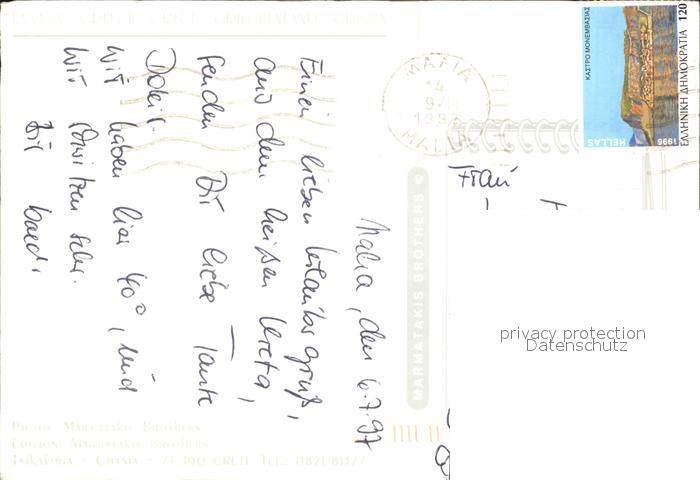 Malia, den 6.7.97
Einen lieben Urlaubsgruß,
aus dem heißen Kreta,
senden Dir liebe Tante
Doris.
Wir haben hier 40°, und
wir schwitzen sehr.
Bis bald.
MARMATAKIS BROTHERS ©
PHOTO: MARMATAKIS BROTHERS
EDITION: MARMATAKIS BROTHERS
TSIKALARIA - CHANIA - 73 100 CRETE TEL: 0821-81377
ΜΑΛΙΑ
14
MALIA
ΚΑΣΤΡΟ ΜΟΝΕΜΒΑΣΙΑΣ
ΕΛΛΗΝΙΚΗ ΔΗΜΟΚΡΑΤΙΑ 120
HELLAS
1996
Frau
privacy protection
Datenschutz